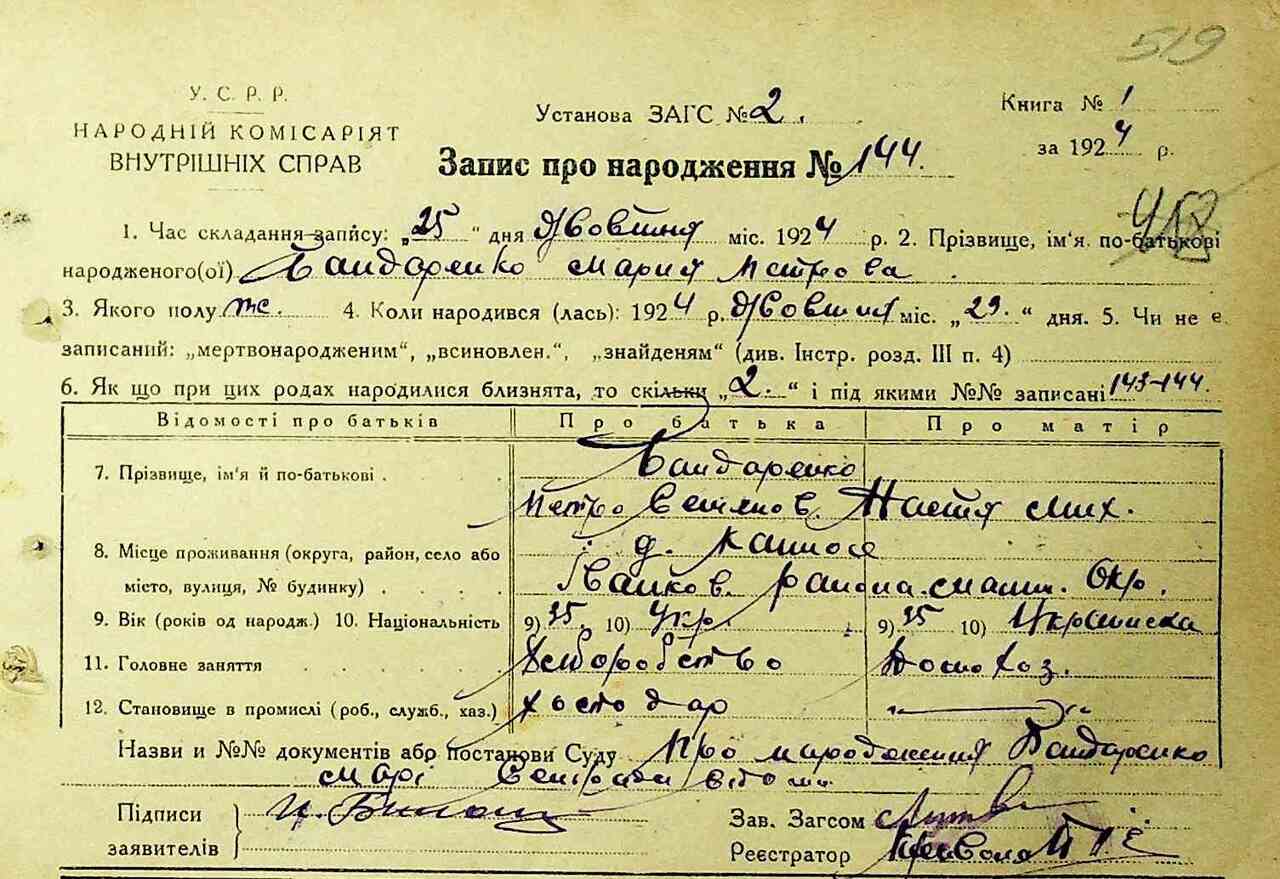 519
У. С. Р. Р.
НАРОДНІЙ КОМІСАРІЯТ
ВНУТРІШНІХ СПРАВ
Установа ЗАГС № 2.
Книга № 1
за 1924 р.
Запис про народження № 144.
1. Час складання запису: „25“ дня Жовтня міс. 1924 р. 2. Прізвище, ім'я по-батькові
народженого(ої) Бандаренко Мария Петрова
3. Якого полу же. 4. Коли народився (лась): 1924 р. Жовтня міс. „23.“ дня. 5. Чи не є
записаний: „мертвонародженим“, „всиновлен.“, „знайденям“ (див. Інстр. розд. III п. 4)
6. Як що при цих родах народилися близнята, то скільки „2.“ і під якими №№ записані 143-144.
Відомості про батьків Про батька Про матір
7. Прізвище, ім'я й по-батькові . Бандаренко
Петро Настя Мих.
8. Місце проживання (округа, район, село або
місто, вулиця, № будинку) . . . района Окр.
9. Вік (років од народж.) 10. Національність 9) 35. 10) Укр. 9) 35 10) Украинска
11. Головне заняття . . . . . Хліборобство
12. Становище в промислі (роб., служб., хаз.) хосподар
Назви и №№ документів або постанови Суду Про народження Бандаренко
Марі
Підписи
заявителів
Зав. Загсом
Реєстратор